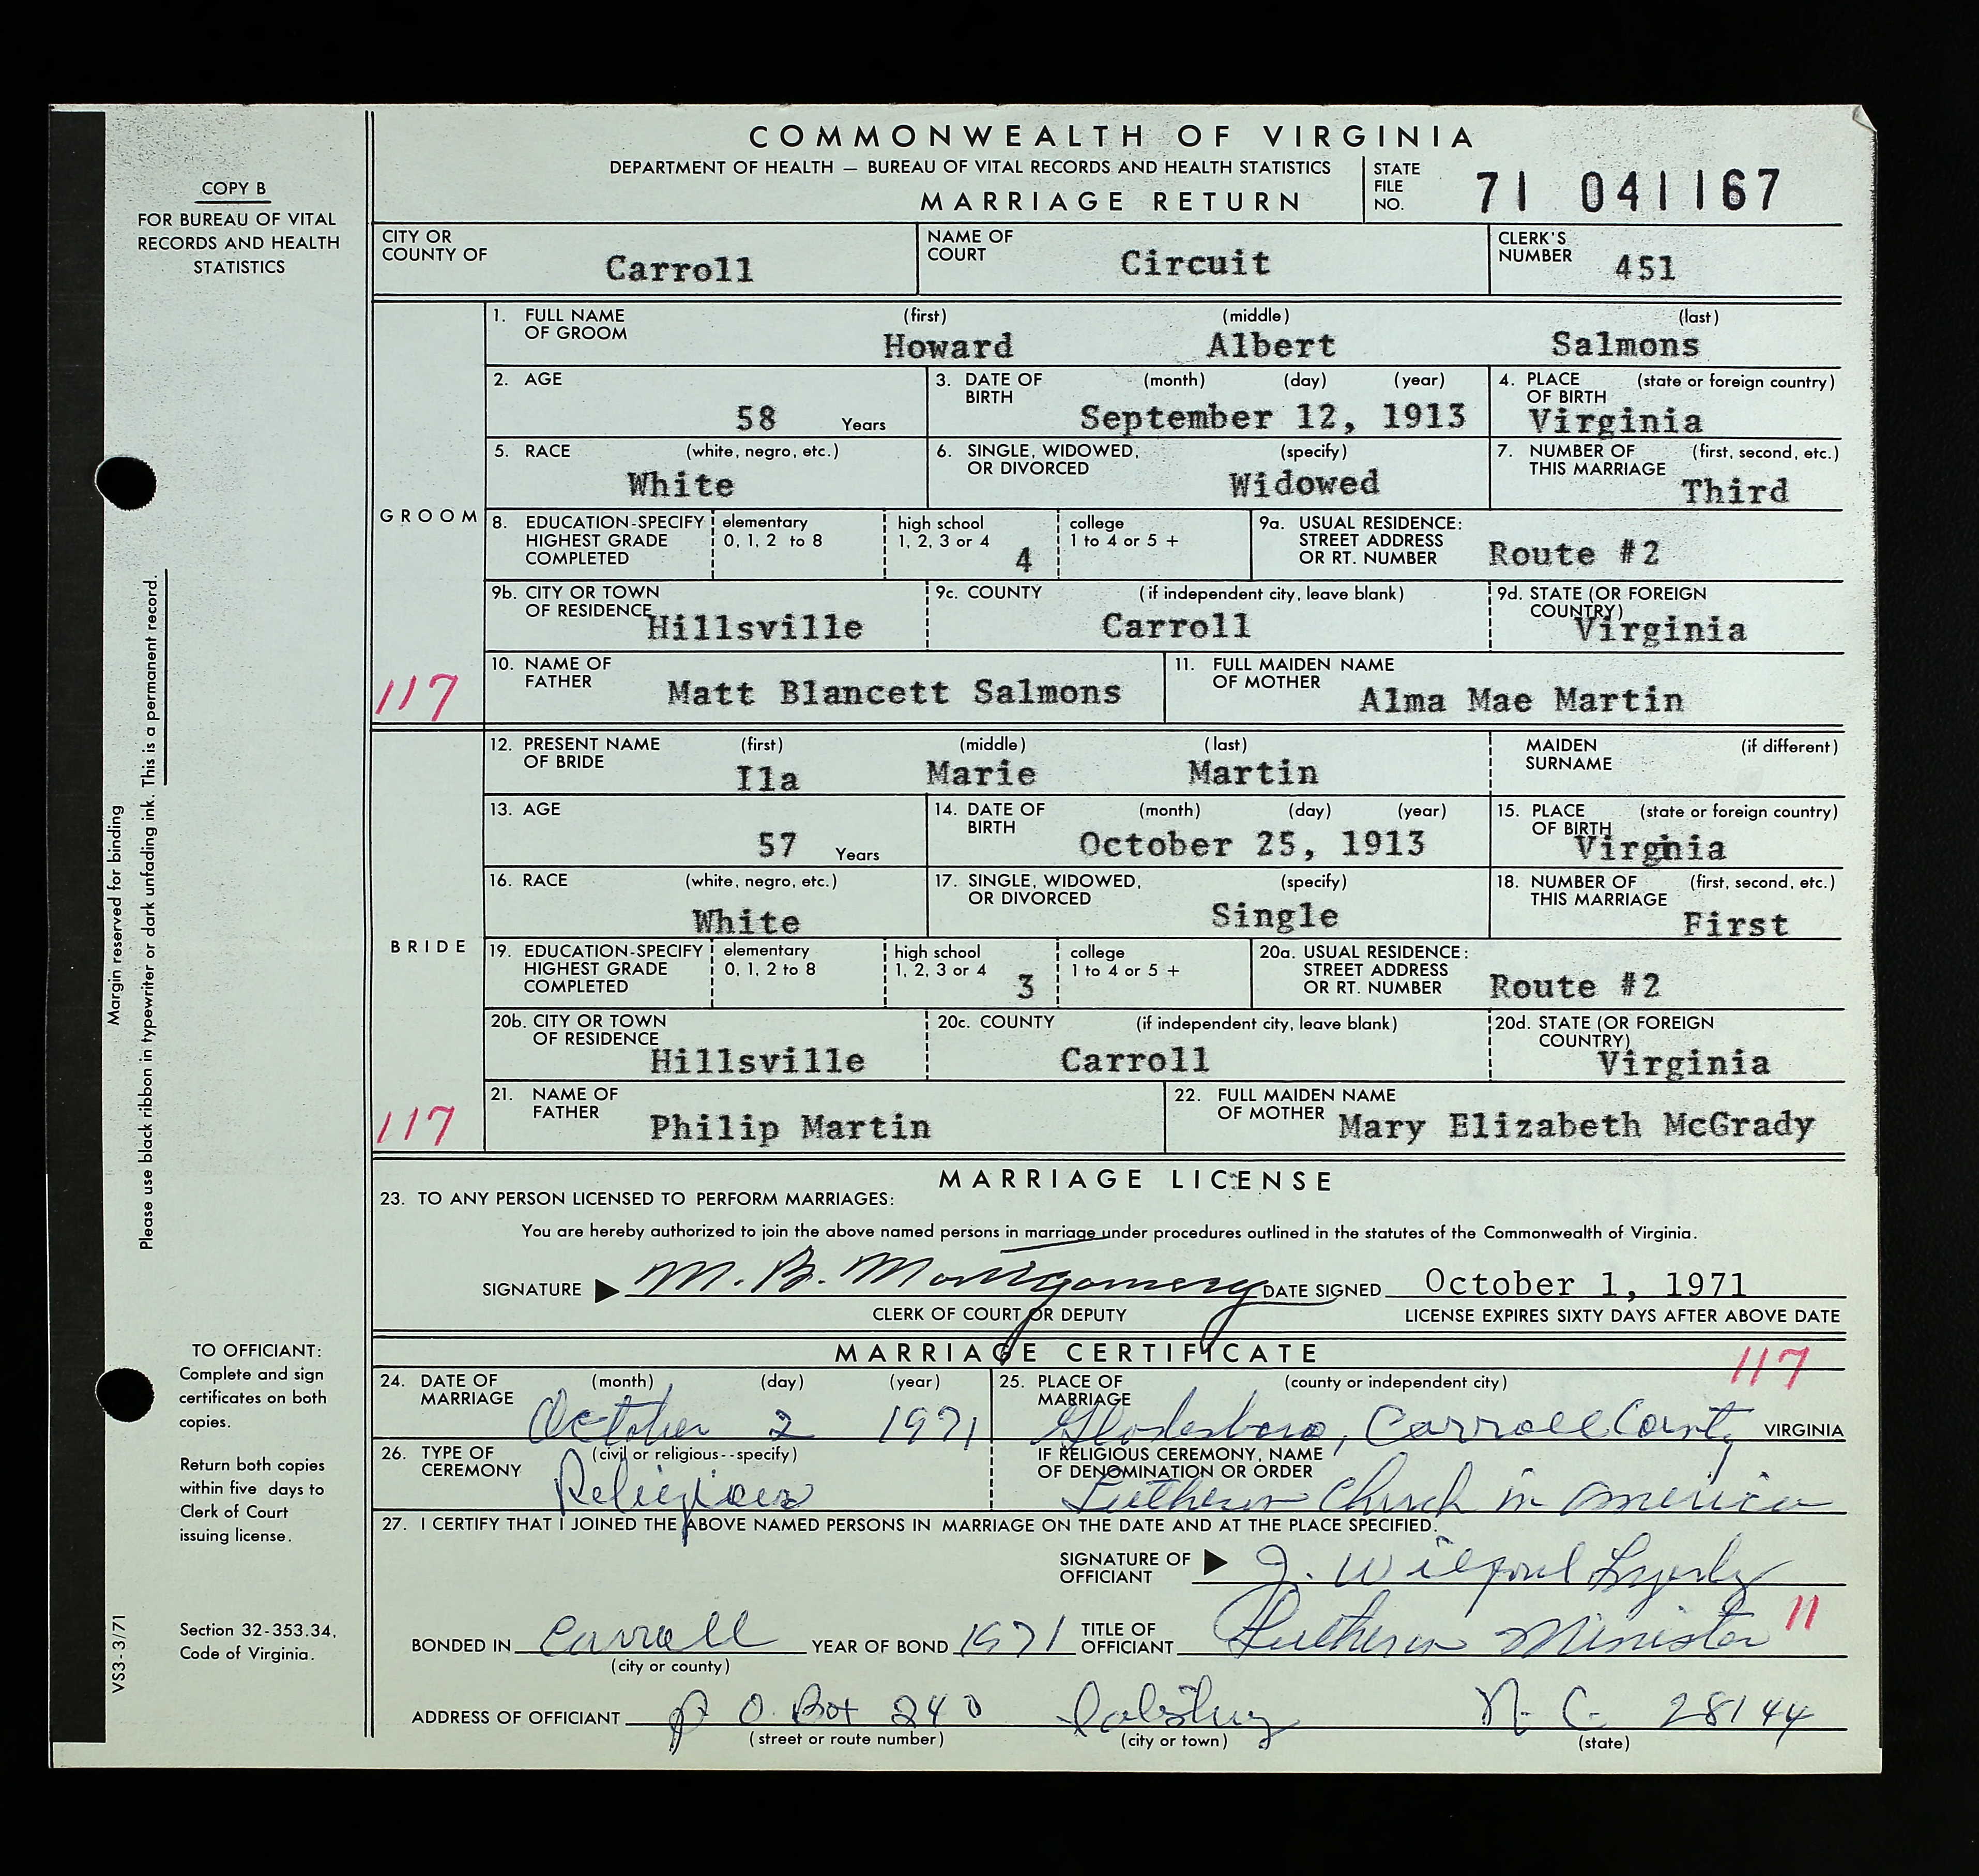 COMMONWEALTH OF VIRGINIA
DEPARTMENT OF HEALTH — BUREAU OF VITAL RECORDS AND HEALTH STATISTICS
MARRIAGE RETURN
STATE FILE NO. 71 041167
COPY B
FOR BUREAU OF VITAL
RECORDS AND HEALTH
STATISTICS
CITY OR COUNTY OF Carroll
NAME OF COURT Circuit
CLERK'S NUMBER 451
GROOM
1. FULL NAME OF GROOM (first) Howard (middle) Albert (last) Salmons
2. AGE 58 Years
3. DATE OF BIRTH (month) (day) (year) September 12, 1913
4. PLACE OF BIRTH (state or foreign country) Virginia
5. RACE (white, negro, etc.) White
6. SINGLE, WIDOWED, OR DIVORCED (specify) Widowed
7. NUMBER OF THIS MARRIAGE (first, second, etc.) Third
8. EDUCATION-SPECIFY HIGHEST GRADE COMPLETED elementary 0, 1, 2 to 8 high school 1, 2, 3 or 4 4 college 1 to 4 or 5 +
9a. USUAL RESIDENCE: STREET ADDRESS OR RT. NUMBER Route #2
9b. CITY OR TOWN OF RESIDENCE Hillsville
9c. COUNTY (if independent city, leave blank) Carroll
9d. STATE (OR FOREIGN COUNTRY) Virginia
10. NAME OF FATHER Matt Blancett Salmons
11. FULL MAIDEN NAME OF MOTHER Alma Mae Martin
117
BRIDE
12. PRESENT NAME OF BRIDE (first) Ila (middle) Marie (last) Martin
MAIDEN SURNAME (if different)
13. AGE 57 Years
14. DATE OF BIRTH (month) (day) (year) October 25, 1913
15. PLACE OF BIRTH (state or foreign country) Virgnia
16. RACE (white, negro, etc.) White
17. SINGLE, WIDOWED, OR DIVORCED (specify) Single
18. NUMBER OF THIS MARRIAGE (first, second, etc.) First
19. EDUCATION-SPECIFY HIGHEST GRADE COMPLETED elementary 0, 1, 2 to 8 high school 1, 2, 3 or 4 3 college 1 to 4 or 5 +
20a. USUAL RESIDENCE: STREET ADDRESS OR RT. NUMBER Route #2
20b. CITY OR TOWN OF RESIDENCE Hillsville
20c. COUNTY (if independent city, leave blank) Carroll
20d. STATE (OR FOREIGN COUNTRY) Virginia
21. NAME OF FATHER Philip Martin
22. FULL MAIDEN NAME OF MOTHER Mary Elizabeth McGrady
117
MARRIAGE LICENSE
23. TO ANY PERSON LICENSED TO PERFORM MARRIAGES:
You are hereby authorized to join the above named persons in marriage under procedures outlined in the statutes of the Commonwealth of Virginia.
SIGNATURE M. B. Montgomery DATE SIGNED October 1, 1971
CLERK OF COURT OR DEPUTY LICENSE EXPIRES SIXTY DAYS AFTER ABOVE DATE
MARRIAGE CERTIFICATE
117
24. DATE OF MARRIAGE (month) (day) (year) October 2 1971
25. PLACE OF MARRIAGE (county or independent city) Carroll County VIRGINIA
26. TYPE OF CEREMONY (civil or religious--specify) Religious
IF RELIGIOUS CEREMONY, NAME OF DENOMINATION OR ORDER Lutheran Church in America
27. I CERTIFY THAT I JOINED THE ABOVE NAMED PERSONS IN MARRIAGE ON THE DATE AND AT THE PLACE SPECIFIED.
SIGNATURE OF OFFICIANT J. Wilford Lyerly
BONDED IN Carroll (city or county) YEAR OF BOND 1971 TITLE OF OFFICIANT Lutheran Minister 11
ADDRESS OF OFFICIANT P O. Box 240 Salisbury N. C. 28144
(street or route number) (city or town) (state)
Margin reserved for binding
Please use black ribbon in typewriter or dark unfading ink. This is a permanent record.
TO OFFICIANT:
Complete and sign
certificates on both
copies.
Return both copies
within five days to
Clerk of Court
issuing license.
Section 32-353.34,
Code of Virginia.
VS3-3/71